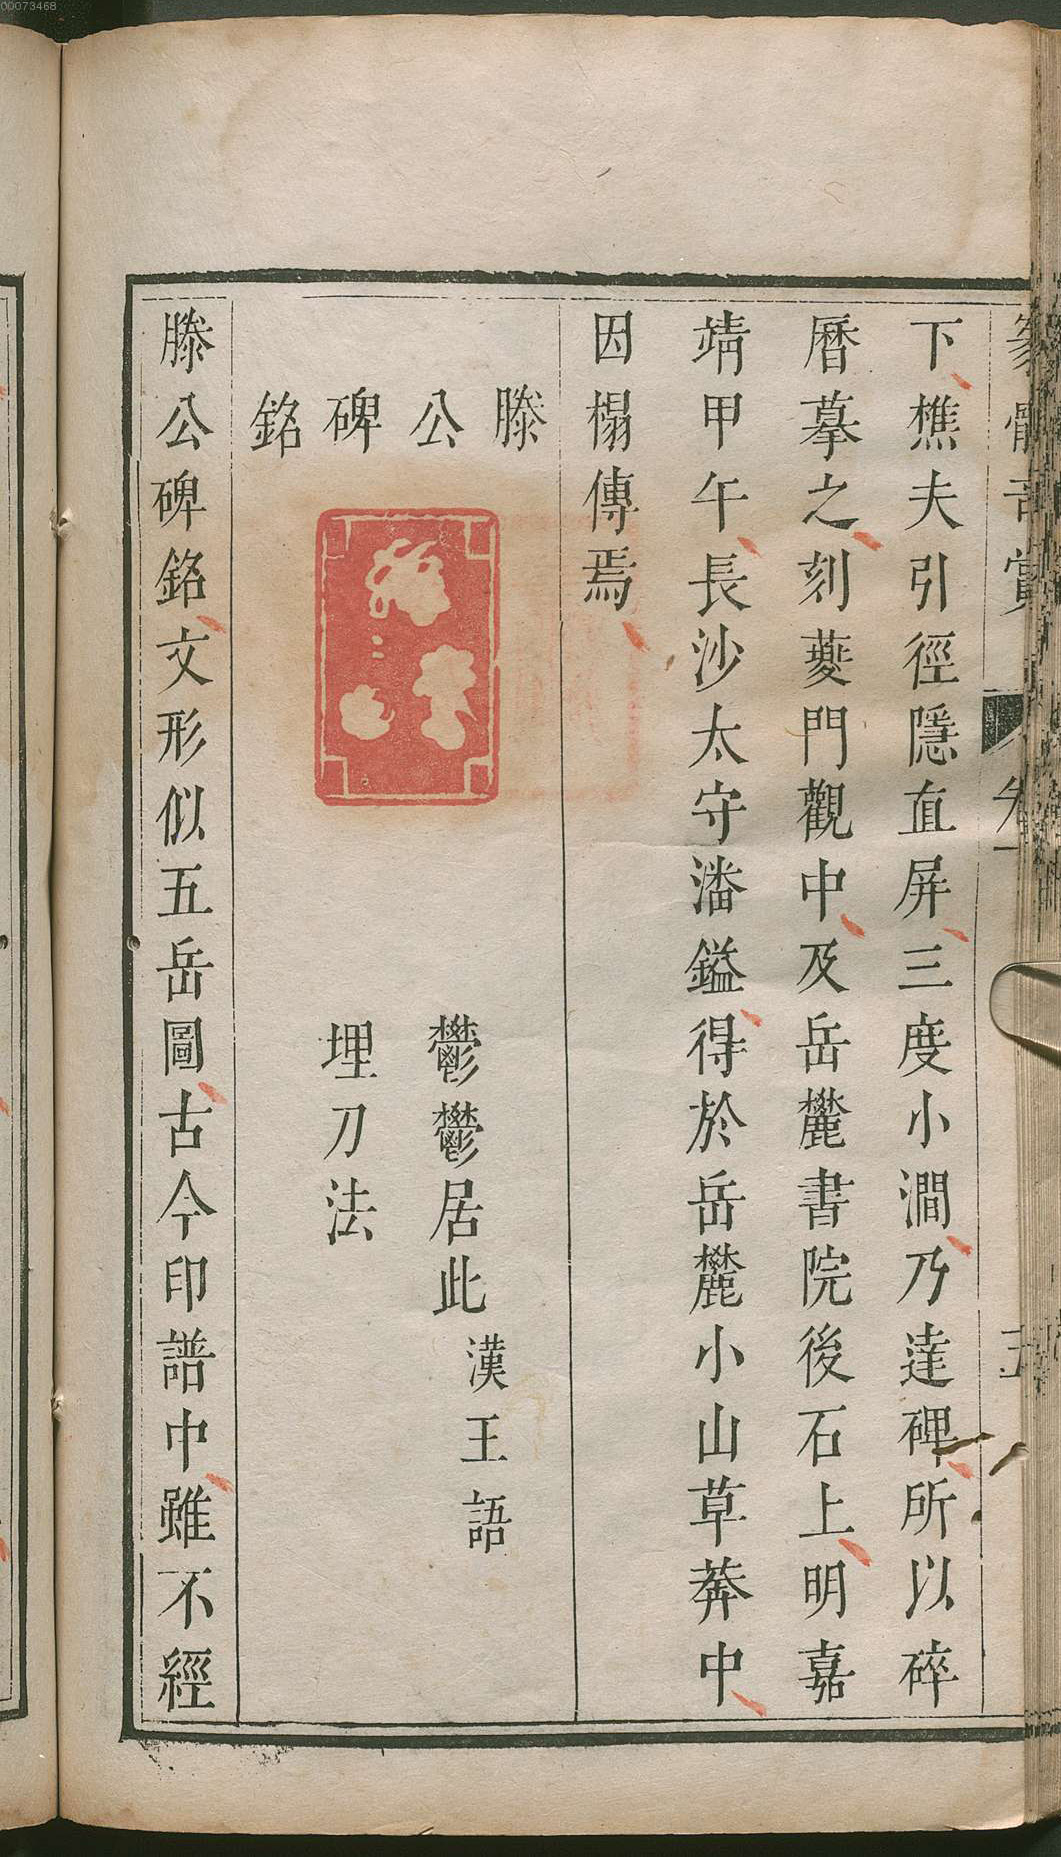 00073468
下樵夫引徑隱直屏三度小澗乃達碑所以碎
曆摹之刻䕫門觀中及岳麓書院後石上明嘉
靖甲午長沙太守潘鎰得於岳麓小山草莽中
因榻傳焉
滕公碑銘
鬱鬱居此
漢王語
埋刀法
滕公碑銘文形似五岳圖古今印譜中雖不經